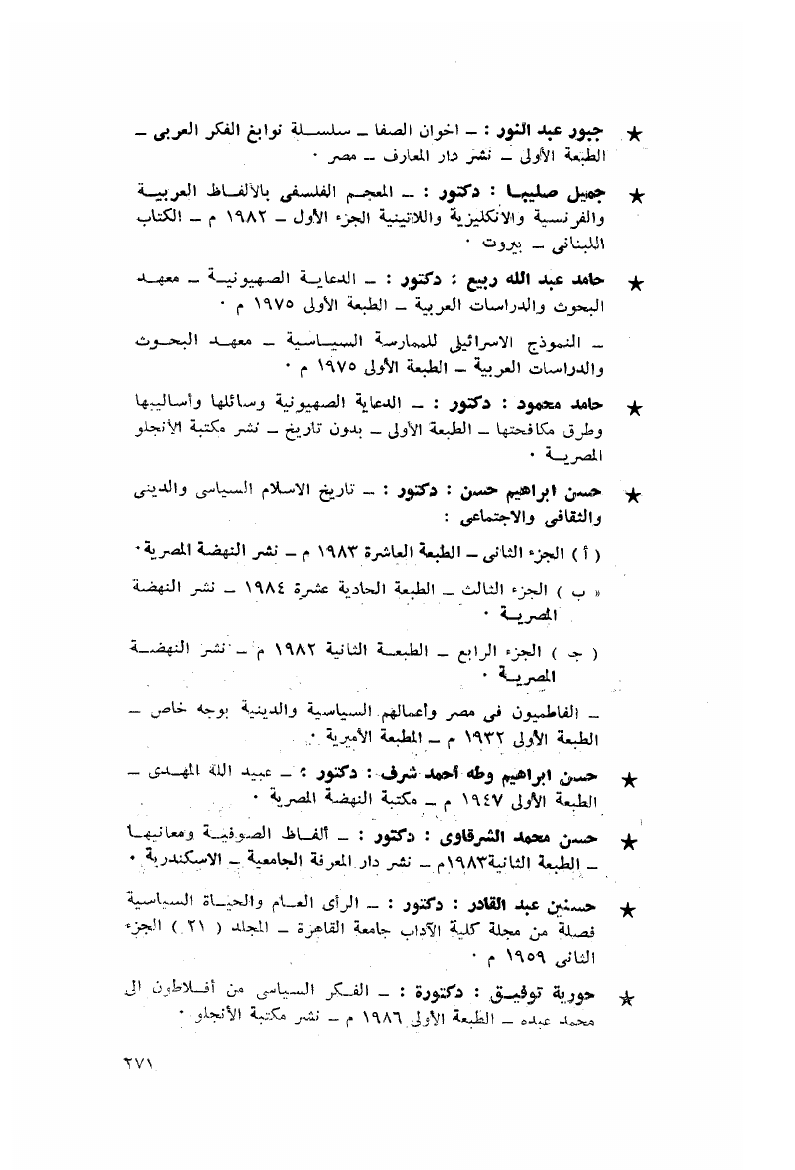 ★ جبور عبد النور : ـ اخوان الصفا ـ سلسلة نوابغ الفكر العربى ـ
الطبعة الأولى ـ نشر دار المعارف ـ مصر ٠
★ جميل صليبا : دكتور : ـ المعجم الفلسفى بالألفاظ العربية
والفرنسية والانكليزية واللاتينية الجزء الأول ـ ١٩٨٢ م ـ الكتاب
اللبنانى ـ بيروت ٠
★ حامد عبد الله ربيع : دكتور : ـ الدعاية الصهيونية ـ معهد
البحوث والدراسات العربية ـ الطبعة الأولى ١٩٧٥ م ٠
ـ النموذج الاسرائيلى للممارسة السياسية ـ معهد البحوث
والدراسات العربية ـ الطبعة الأولى ١٩٧٥ م ٠
★ حامد محمود : دكتور : ـ الدعاية الصهيونية وسائلها وأساليبها
وطرق مكافحتها ـ الطبعة الأولى ـ بدون تاريخ ـ نشر مكتبة الأنجلو
المصرية ٠
★ حسن ابراهيم حسن : دكتور : ـ تاريخ الاسلام السياسى والدينى
والثقافى والاجتماعى :
( أ ) الجزء الثانى ـ الطبعة العاشرة ١٩٨٣ م ـ نشر النهضة المصرية ٠
« ب ) الجزء الثالث ـ الطبعة الحادية عشرة ١٩٨٤ ـ نشر النهضة
المصرية ٠
( جـ ) الجزء الرابع ـ الطبعة الثانية ١٩٨٢ م ـ نشر النهضة
المصرية ٠
ـ الفاطميون فى مصر وأعمالهم السياسية والدينية بوجه خاص ـ
الطبعة الأولى ١٩٣٢ م ـ المطبعة الأميرية ٠
★ حسن ابراهيم وطه أحمد شرف : دكتور : ـ عبيد الله المهدى ـ
الطبعة الأولى ١٩٤٧ م ـ مكتبة النهضة المصرية ٠
★ حسن محمد الشرقاوى : دكتور : ـ ألفاظ الصوفية ومعانيها
ـ الطبعة الثانية ١٩٨٣م ـ نشر دار المعرفة الجامعية ـ الاسكندرية ٠
★ حسنين عبد القادر : دكتور : ـ الرأى العام والحياة السياسية
فصلة من مجلة كلية الآداب جامعة القاهرة ـ المجلد ( ٢١ ) الجزء
الثانى ١٩٥٩ م ٠
★ حورية توفيق : دكتورة : ـ الفكر السياسى من أفلاطون الى
محمد عبده ـ الطبعة الأولى ١٩٨٦ م ـ نشر مكتبة الأنجلو ٠
٢٧١